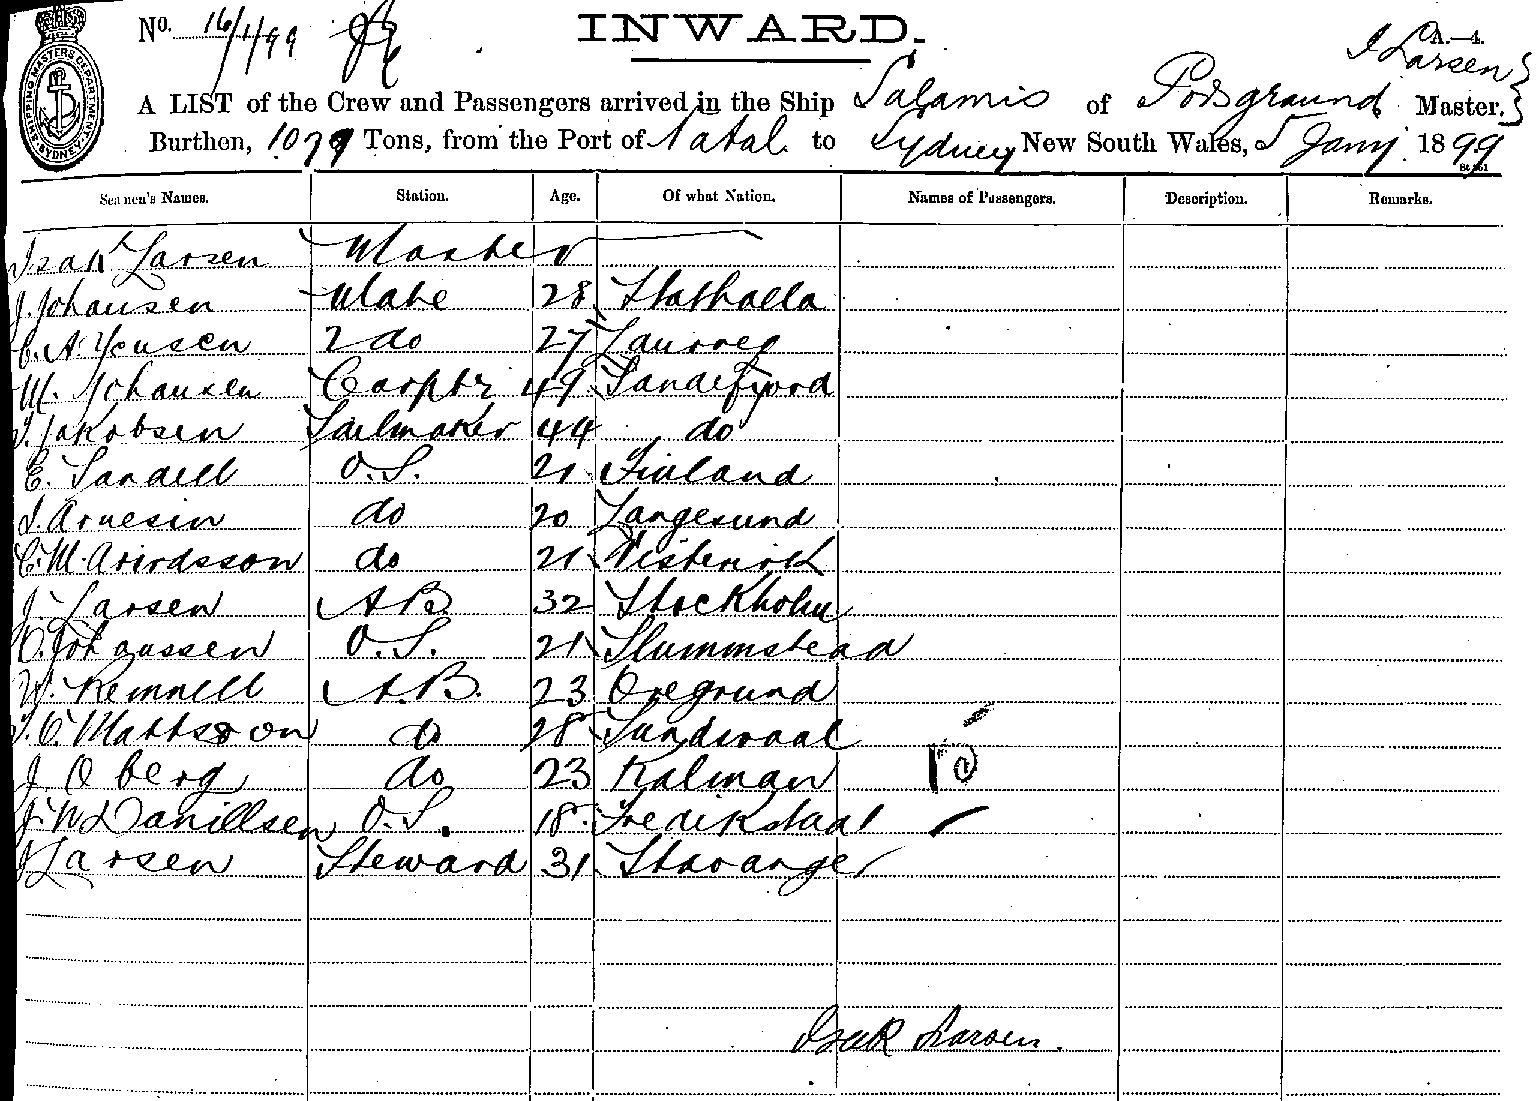 No. 16/1/99
INWARD.
A.—4.
I Larsen
A LIST of the Crew and Passengers arrived in the Ship Salamis of Porsgraund Master.
Burthen, 1079 Tons, from the Port of Natal to Sydney New South Wales, 5 Jany. 1899
SHIPPING MASTERS DEPARTMENT SYDNEY
Seamen's Names. Station. Age. Of what Nation. Names of Passengers. Description. Remarks.
Isak Larsen Master
J. Johansen Mate 28 Stathaella
C. A. Jensen 2 do 27 Laurveg
M. Johansen Carptr 49 Sandefjord
J. Jakobsen Sailmaker 44 do
E. Sandell O.S. 21 Finland
I. Arnesin do 20 Langesund
C. M. Arvidsson do 21 Vistervik
J. Larsen A B 32 Stockholm
C. Johanssen O.S. 21 Slummstead
W. Remnell A.B. 23 Oregrund
J. O. Mattsson do 28 Sundsvaal
J. Oberg do 23 Kalmar
J. N Danillsen O.S. 18 Fredikstad
J Larsen Steward 31 Stavanger
10
Isak Larsen.